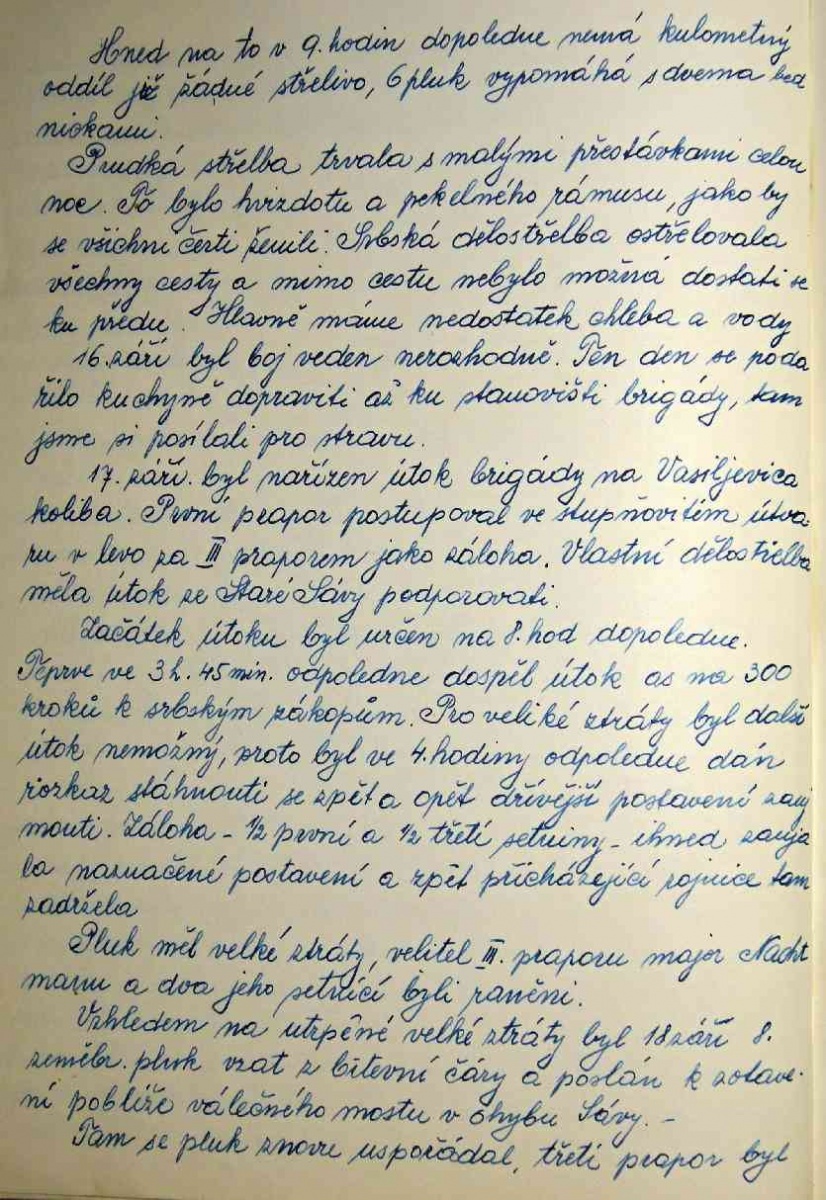 Hned na to v 9. hodin dopoledne nemá kulometný
oddíl již žádné střelivo, 6 pluk vypomáhá s dvema bed
niskami.
Prudká střelba trvala s malými přestávkami celou
noc. To bylo hvizdotu a pekelného rámusu, jako by
se všichni čerti ženili. Srbská dělostřelba ostřelovala
všechny cesty a mimo cestu nebylo možná dostati se
ku předu. Hlavně máme nedostatek chleba a vody
16. září byl boj veden nerozhodně. Ten den se poda
řilo kuchyně dopraviti až ku stanovišti brigády, tam
jsme si posílali pro stravu.
17. září. byl nařízen útok brigády na Vasiljevica
koliba. První prapor postupoval ve stupňovitém útva-
ru v levo za III praporem jako záloha. Vlastní dělostřelba
měla útok ze Staré Sávy podporovati.
Začátek útoku byl určen na 8. hod dopoledne.
Teprve ve 3 h. 45 min. odpoledne dospěl útok as na 300
kroků k srbským zákopům. Pro veliké ztráty byl další
útok nemožný, proto byl ve 4. hodiny odpoledne dán
rozkaz stáhnouti se zpět a opět dřívější postavení zauj
mouti. Záloha - 1/2 první a 1/2 třetí setniny - ihned zauja
la naznačené postavení a zpět přicházející rojnice tam
zadržela
Pluk měl velké ztráty, velitel III. praporu major Nacht
mann a dva jeho setníci byli raněni.
Vzhledem na utrpěné velké ztráty byl 18 září 8.
zeměbr. pluk vzat z bitevní čáry a poslán k zotave-
ní poblíže válečného mostu v ohybu Sávy. -
Tam se pluk znovu uspořádal, třetí prapor byl